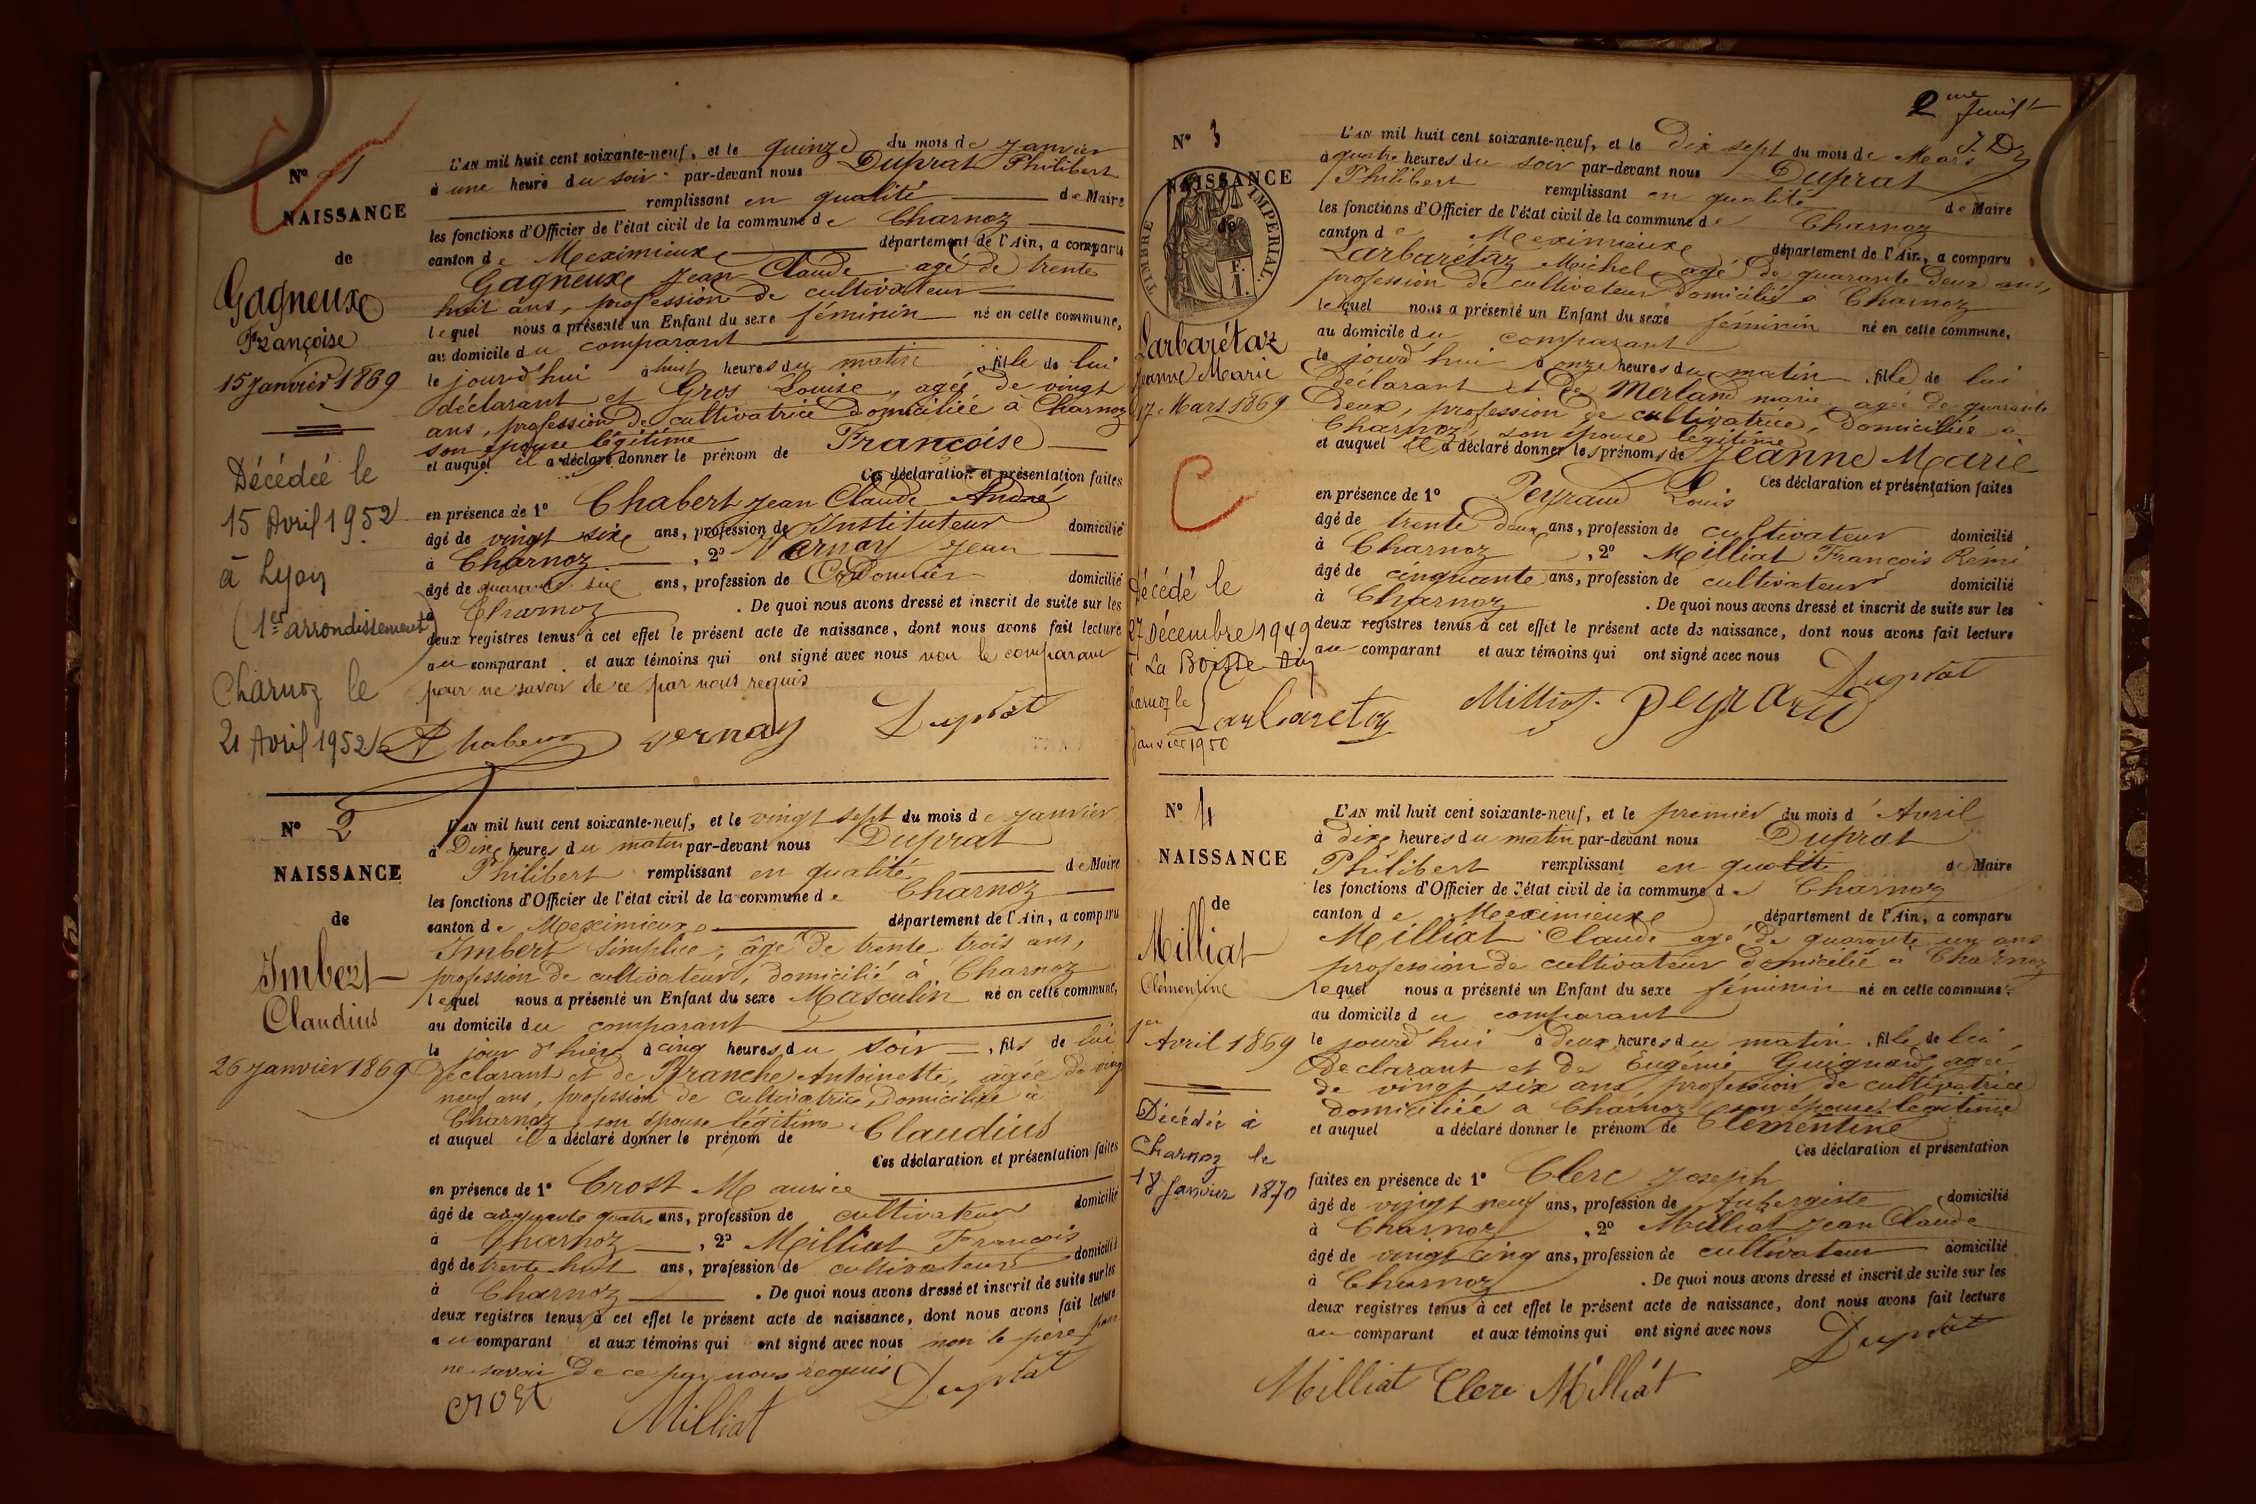 N° 1
NAISSANCE
de
Gagneux
Françoise
15 Janvier 1869
Décédée le
15 Avril 1952
à Lyon
(1er arrondissement)
Charnoz le
21 Avril 1952
L'AN mil huit cent soixante-neuf, et le quinze du mois de Janvier
à une heure du soir par-devant nous Duprat Philibert
remplissant en qualité de Maire
les fonctions d'Officier de l'état civil de la commune de Charnoz
canton de Meximieux département de l'Ain, a comparu
Gagneux Jean Claude agé de trente
huit ans, profession de cultivateur
lequel nous a présenté un Enfant du sexe féminin né en cette commune,
au domicile du comparant
le jourd'hui à huit heures du matin, fille de lui
déclarant et Gros Louise, agée de vingt
ans, profession de cultivatrice domiciliée à Charnoz
son épouse légitime
et auquel il a déclaré donner le prénom de Françoise
Ces déclaration et présentation faites
en présence de 1° Chabert Jean Claude André
âgé de vingt six ans, profession de Instituteur domicilié
à Charnoz, 2° Vernay Jean
âgé de quarante six ans, profession de Cordonnier domicilié
à Charnoz. De quoi nous avons dressé et inscrit de suite sur les
deux registres tenus à cet effet le présent acte de naissance, dont nous avons fait lecture
au comparant. et aux témoins qui ont signé avec nous non le comparant
pour ne savoir de ce par nous requis
Chabert Vernay Duprat
N° 2
NAISSANCE
de
Imbert
Claudius
26 Janvier 1869
L'AN mil huit cent soixante-neuf, et le vingt sept du mois de Janvier
à Dix heures du matin par-devant nous Duprat
Philibert remplissant en qualité de Maire
les fonctions d'Officier de l'état civil de la commune de Charnoz
canton de Meximieux département de l'Ain, a comparu
Imbert Simplice, âgé de trente trois ans,
profession de cultivateur, domicilié à Charnoz
lequel nous a présenté un Enfant du sexe Masculin né en cette commune,
au domicile du comparant
le jour d'hier à cinq heures du soir, fils de lui
déclarant et de Branche Antoinette, agée de vingt
neuf ans, profession de cultivatrice, domiciliée à
Charnoz, son épouse légitime
et auquel il a déclaré donner le prénom de Claudius
Ces déclaration et présentation faites
en présence de 1° Crost Maurice
âgé de cinquante quatre ans, profession de cultivateur domicilié
à Charnoz, 2° Milliat François
âgé de trente huit ans, profession de cultivateur domicilié
à Charnoz. De quoi nous avons dressé et inscrit de suite sur les
deux registres tenus à cet effet le présent acte de naissance, dont nous avons fait lecture
au comparant et aux témoins qui ont signé avec nous non le père pour
ne savoir de ce par nous requis Duprat
Crost Milliat
2me feuillt
N° 3
NAISSANCE
de
TIMBRE IMPERIAL
Larbarétaz
Jeanne Marie
17 Mars 1869
Décédé le
27 Décembre 1949
à La Boisse Ain
Charnoz le
Janvier 1950
L'AN mil huit cent soixante-neuf, et le Dix sept du mois de Mars
à quatre heures du soir par-devant nous Duprat
Philibert remplissant en qualité de Maire
les fonctions d'Officier de l'état civil de la commune de Charnoz
canton de Meximieux département de l'Ain, a comparu
Larbarétaz Michel agé de quarante deux ans,
profession de cultivateur domicilié à Charnoz
lequel nous a présenté un Enfant du sexe féminin né en cette commune,
au domicile du comparant
le jourd'hui à onze heures du matin, fille de lui
déclarant et de Merland marie agée de quarante
deux, profession de cultivatrice, domiciliée à
Charnoz, son épouse légitime
et auquel il a déclaré donner les prénoms de Jeanne Marie
Ces déclaration et présentation faites
en présence de 1° Peyraud Louis
âgé de trente deux ans, profession de cultivateur domicilié
à Charnoz, 2° Milliat François Rémi
âgé de cinquante ans, profession de cultivateur domicilié
à Charnoz. De quoi nous avons dressé et inscrit de suite sur les
deux registres tenus à cet effet le présent acte de naissance, dont nous avons fait lecture
au comparant et aux témoins qui ont signé avec nous
Duprat
Larbaretaz Milliat Peyraud
N° 4
NAISSANCE
de
Milliat
Clémentine
1er Avril 1869
Décédée à
Charnoz le
18 Janvier 1870
L'AN mil huit cent soixante-neuf, et le premier du mois d'Avril
à dix heures du matin par-devant nous Duprat
Philibert remplissant en qualité de Maire
les fonctions d'Officier de l'état civil de la commune de Charnoz
canton de Meximieux département de l'Ain, a comparu
Milliat Claude agé de quarante un ans
profession de cultivateur domicilié à Charnoz
lequel nous a présenté un Enfant du sexe féminin né en cette commune,
au domicile du comparant
le jourd'hui à deux heures du matin, fille de lui,
Declarant et de Eugénie Guignard, agée
de vingt six ans profession de cultivatrice
domiciliée a Charnoz son épouse légitime
et auquel a déclaré donner le prénom de Clémentine
Ces déclaration et présentation
faites en présence de 1° Clerc Joseph
âgé de vingt neuf ans, profession de Aubergiste domicilié
à Charnoz, 2° Milliat Jean Claude
âgé de vingt cinq ans, profession de cultivateur domicilié
à Charnoz. De quoi nous avons dressé et inscrit de suite sur les
deux registres tenus à cet effet le présent acte de naissance, dont nous avons fait lecture
au comparant et aux témoins qui ont signé avec nous
Duprat
Milliat Clerc Milliat